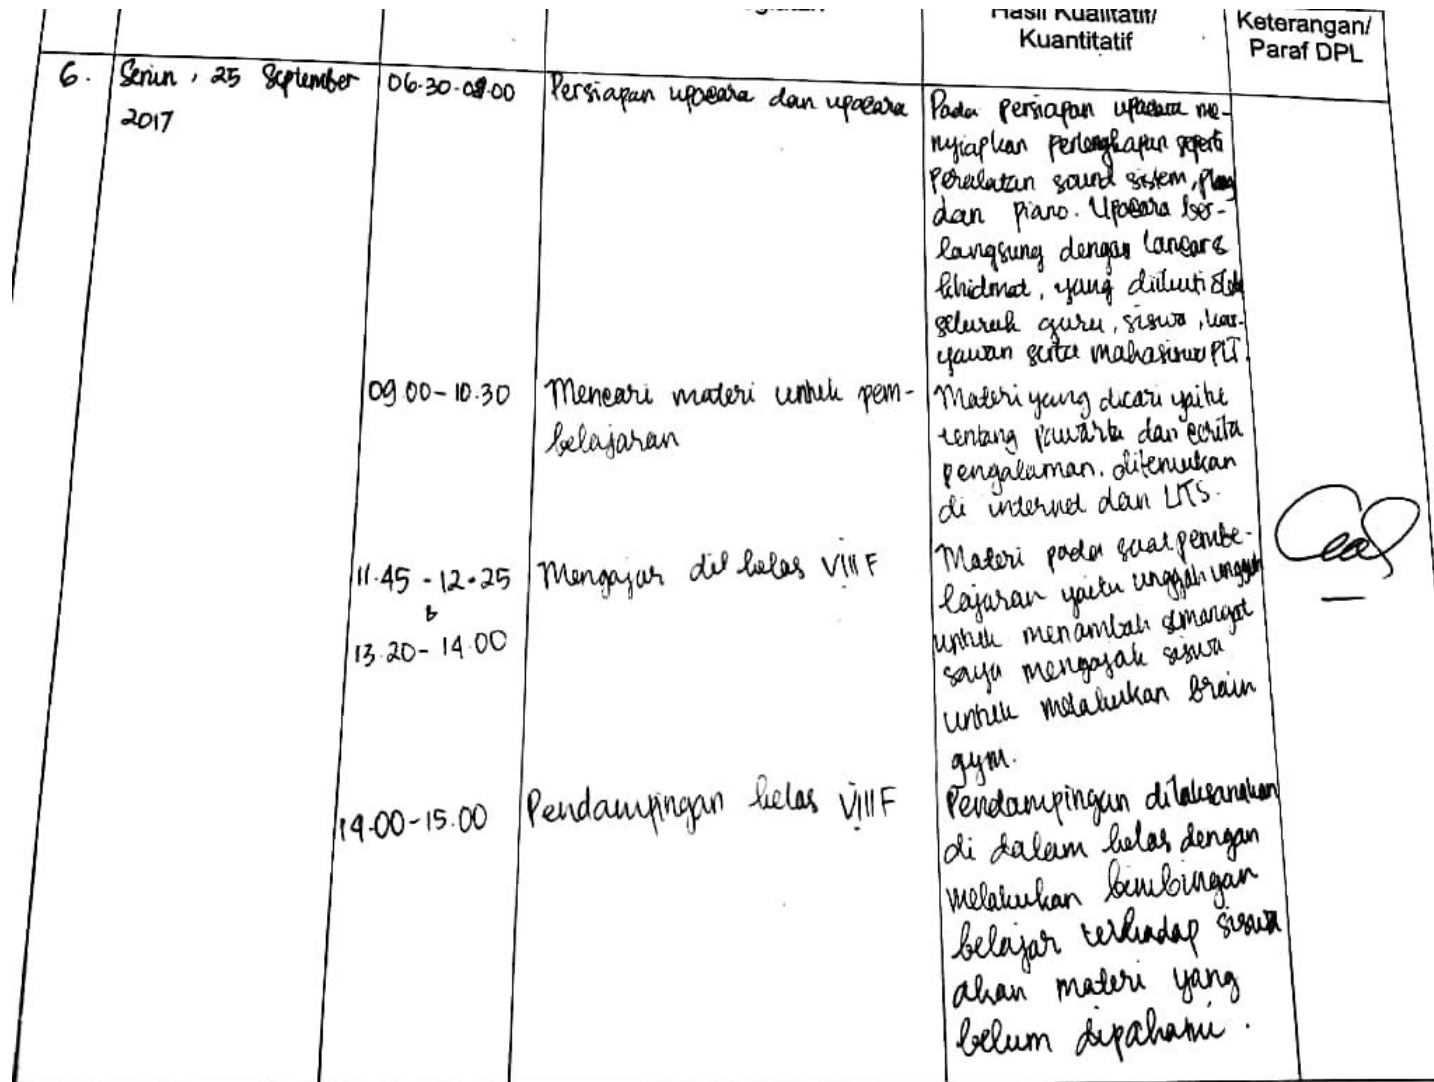 Hasil Kualitatif/
Kuantitatif
Keterangan/
Paraf DPL
6. Senin, 25 September
2017
06.30-08.00
Persiapan upacara dan upacara
Pada persiapan upacara me-
nyiapkan perlengkapan seperti
Peralatan sound sistem,
dan piano. Upacara ber-
langsung dengan lancar &
khidmat, yang diikuti oleh
seluruh guru, siswa, kar-
yawan serta mahasiswa PLT.
09.00-10.30
Mencari materi untuk pem-
belajaran
Materi yang dicari yaitu
tentang pawarta dan cerita
pengalaman. ditemukan
di internet dan LKS.
11.45 - 12.25
&
13.20- 14.00
Mengajar di kelas VIII F
Materi pada saat pembe-
lajaran yaitu unggah ungguh
untuk menambah semangat
saya mengajak siswa
untuk melakukan brain
gym.
14.00-15.00
Pendampingan kelas VIII F
Pendampingan dilaksanakan
di dalam kelas dengan
melakukan bimbingan
belajar terhadap siswa
akan materi yang
belum dipahami.